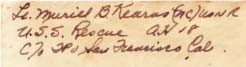 Lt. Muriel B. Kearns (NC) USNR
U.S.S. Rescue AH 18
C/o FPO San Francisco Cal.